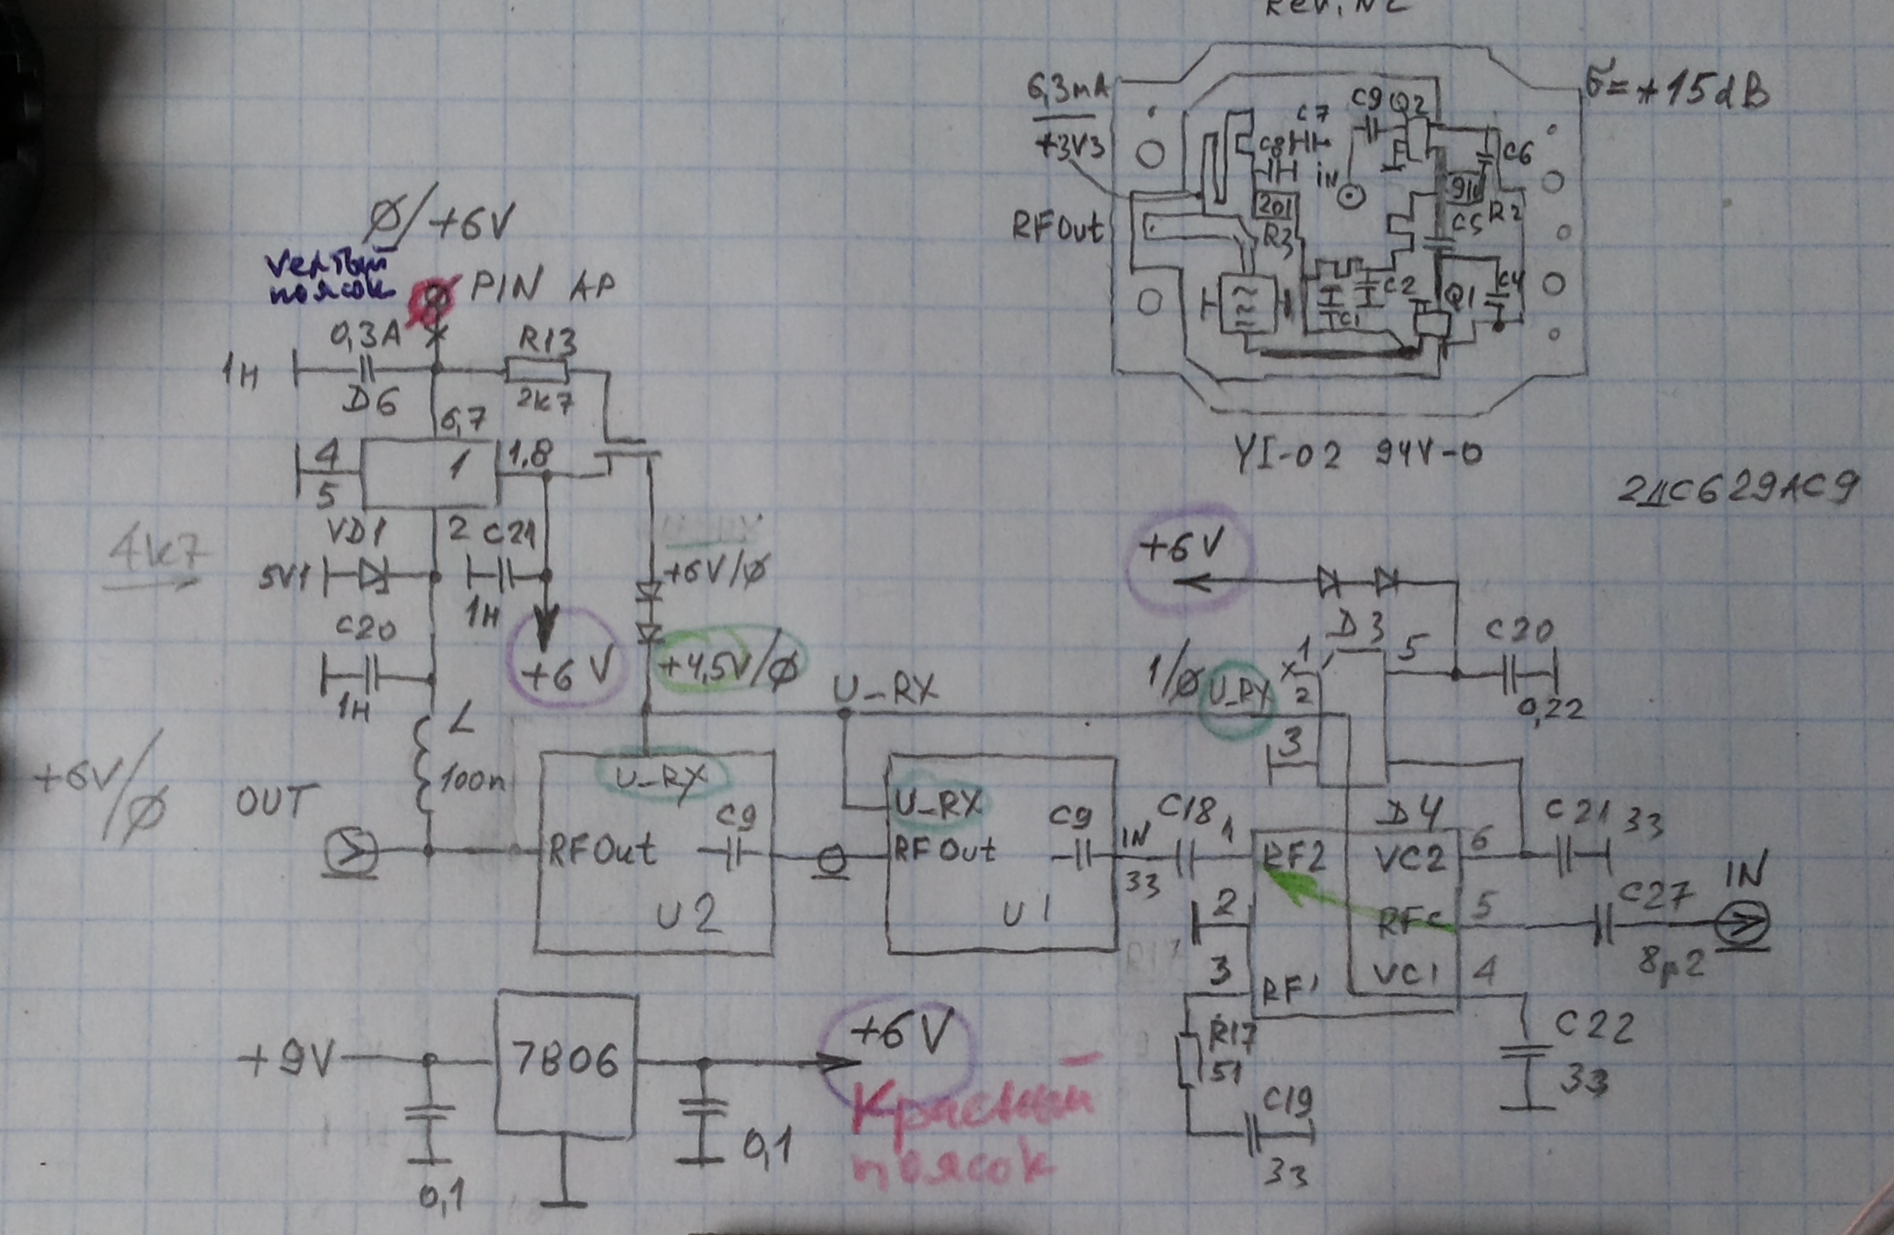 Rev. N2
6,3mA
+3V3
RFOut
C7
C9
Q2
C8
iN
201
R3
C6
91
C5
R2
C2
C1
Q1
C4
G=+15dB
YI-02 94V-0
2ДC629AC9
Ø/+6V
поясок
PIN AP
0,3A
R13
1H
D6
2k7
6,7
4
1
1,8
5
VD1
2
C21
4k7
5V1
1H
+6V/Ø
C20
+6V
+4,5V/Ø
1H
L
100n
+6V/Ø
OUT
U_RX
RFOut
C9
U2
U_RX
U_RX
RFOut
C9
U1
IN
33
C18
+6V
D3
1
5
C20
1/Ø
U_RX
2
0,22
3
D4
C21
33
1
RF2
VC2
6
2
RFc
5
C27
IN
8p2
3
RF1
VC1
4
R17
R17
51
C22
33
C19
33
+9V
7806
+6V
Красный
поясок
0,1
0,1